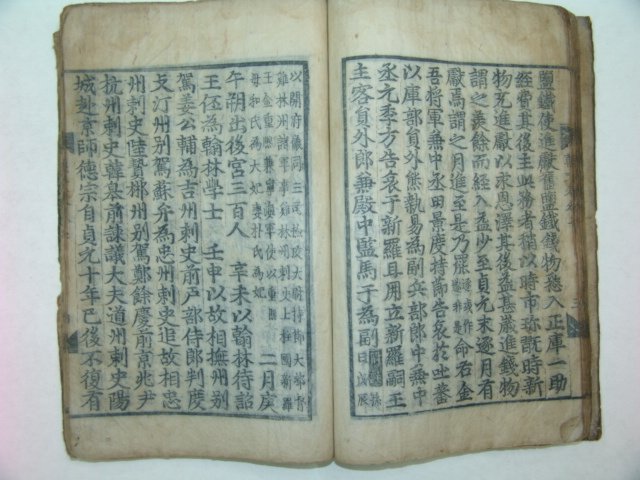 鹽鐵使進獻舊鹽鐵錢物悉入正庫一助
經費其後主此務者稍以時市珍玩時新
物充進獻以求恩澤其後益甚歲進錢物
謂之羨餘而經入益少至貞元末逐月有
獻焉謂之月進至是乃罷命右金
吾將軍兼中丞田景度持節告哀於吐蕃
以庫部員外熊執易為副兵部郎中兼中
丞元季方告哀于新羅且用立新羅嗣王
主客員外郎兼殿中監馬于為副
以開府儀同三司檢校大尉持節大都督
雞林州諸軍事雞林州刺史上柱國新羅
王金重熙兼寧海軍使以重熙
母和氏為太妃妻朴氏為妃 二月庚
午朔出後宮三百人 辛未以翰林待詔
王伾為翰林學士 壬申以故相撫州別
駕姜公輔為吉州刺史前戶部侍郎判度
支汀州別駕蘇弁為忠州刺史追故相忠
州刺史陸贄郴州別駕鄭餘慶前京兆尹
杭州刺史韓皋前諫議大夫道州刺史陽
城赴京師德宗自貞元十年已後不復有